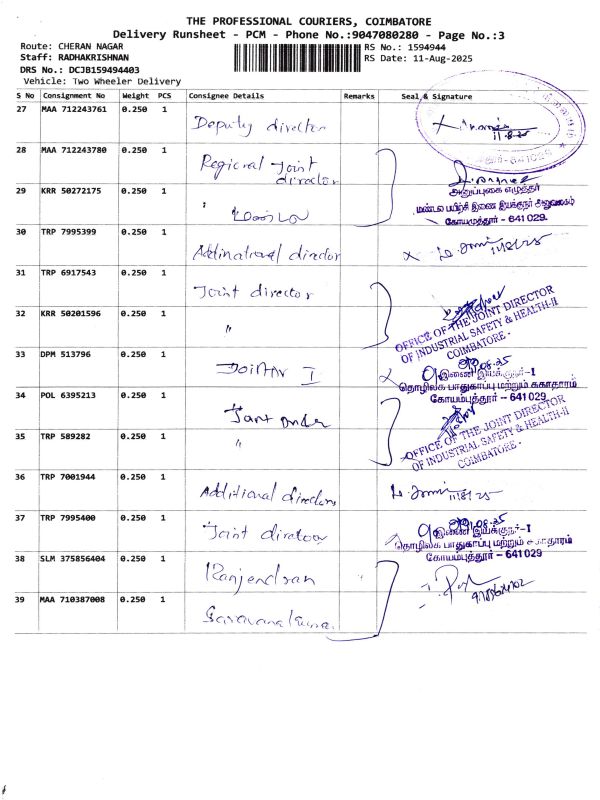 THE PROFESSIONAL COURIERS, COIMBATORE
Delivery Runsheet - PCM - Phone No.:9047080280 - Page No.:3
Route: CHERAN NAGAR
Staff: RADHAKRISHNAN
DRS No.: DCJB159494403
Vehicle: Two Wheeler Delivery
RS No.: 1594944
RS Date: 11-Aug-2025
S No Consignment No Weight PCS Consignee Details Remarks Seal & Signature
27 MAA 712243761 0.250 1
Deputy director
11-8-25
28 MAA 712243780 0.250 1
Regional Joint
director
29 KRR 50272175 0.250 1
"
அனுப்புகை எழுத்தர்
மண்டல பயிற்சி இணை இயக்குநர் அலுவலகம்
கோயமுத்தூர் - 641 029.
30 TRP 7995399 0.250 1
Addinatroval director
11/8/25
31 TRP 6917543 0.250 1
Joint director
32 KRR 50201596 0.250 1
"
OFFICE OF THE JOINT DIRECTOR
OF INDUSTRIAL SAFETY & HEALTH-II
COIMBATORE -
33 DPM 513796 0.250 1
I
இணை இயக்குநர்-I
தொழிலக பாதுகாப்பு மற்றும் சுகாதாரம்
கோயம்புத்தூர் - 641 029
34 POL 6395213 0.250 1
35 TRP 589282 0.250 1
"
OFFICE OF THE JOINT DIRECTOR
OF INDUSTRIAL SAFETY & HEALTH-II
COIMBATORE -
36 TRP 7001944 0.250 1
Additional director
11/8/25
37 TRP 7995400 0.250 1
Joint
இணை இயக்குநர்-I
தொழிலக பாதுகாப்பு மற்றும் சுகாதாரம்
கோயம்புத்தூர் - 641 029
38 SLM 375856404 0.250 1
Ranjendran
39 MAA 710387008 0.250 1
Saravanakumar